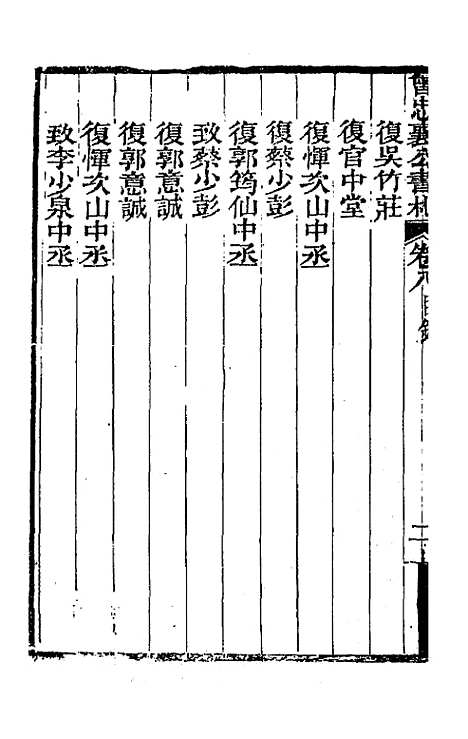 曾忠襄公書札 卷八 目錄 二
復吳竹莊
復官中堂
復惲次山中丞
復蔡少彭
復郭筠仙中丞
致蔡少彭
復郭意誠
復郭意誠
復惲次山中丞
致李少泉中丞